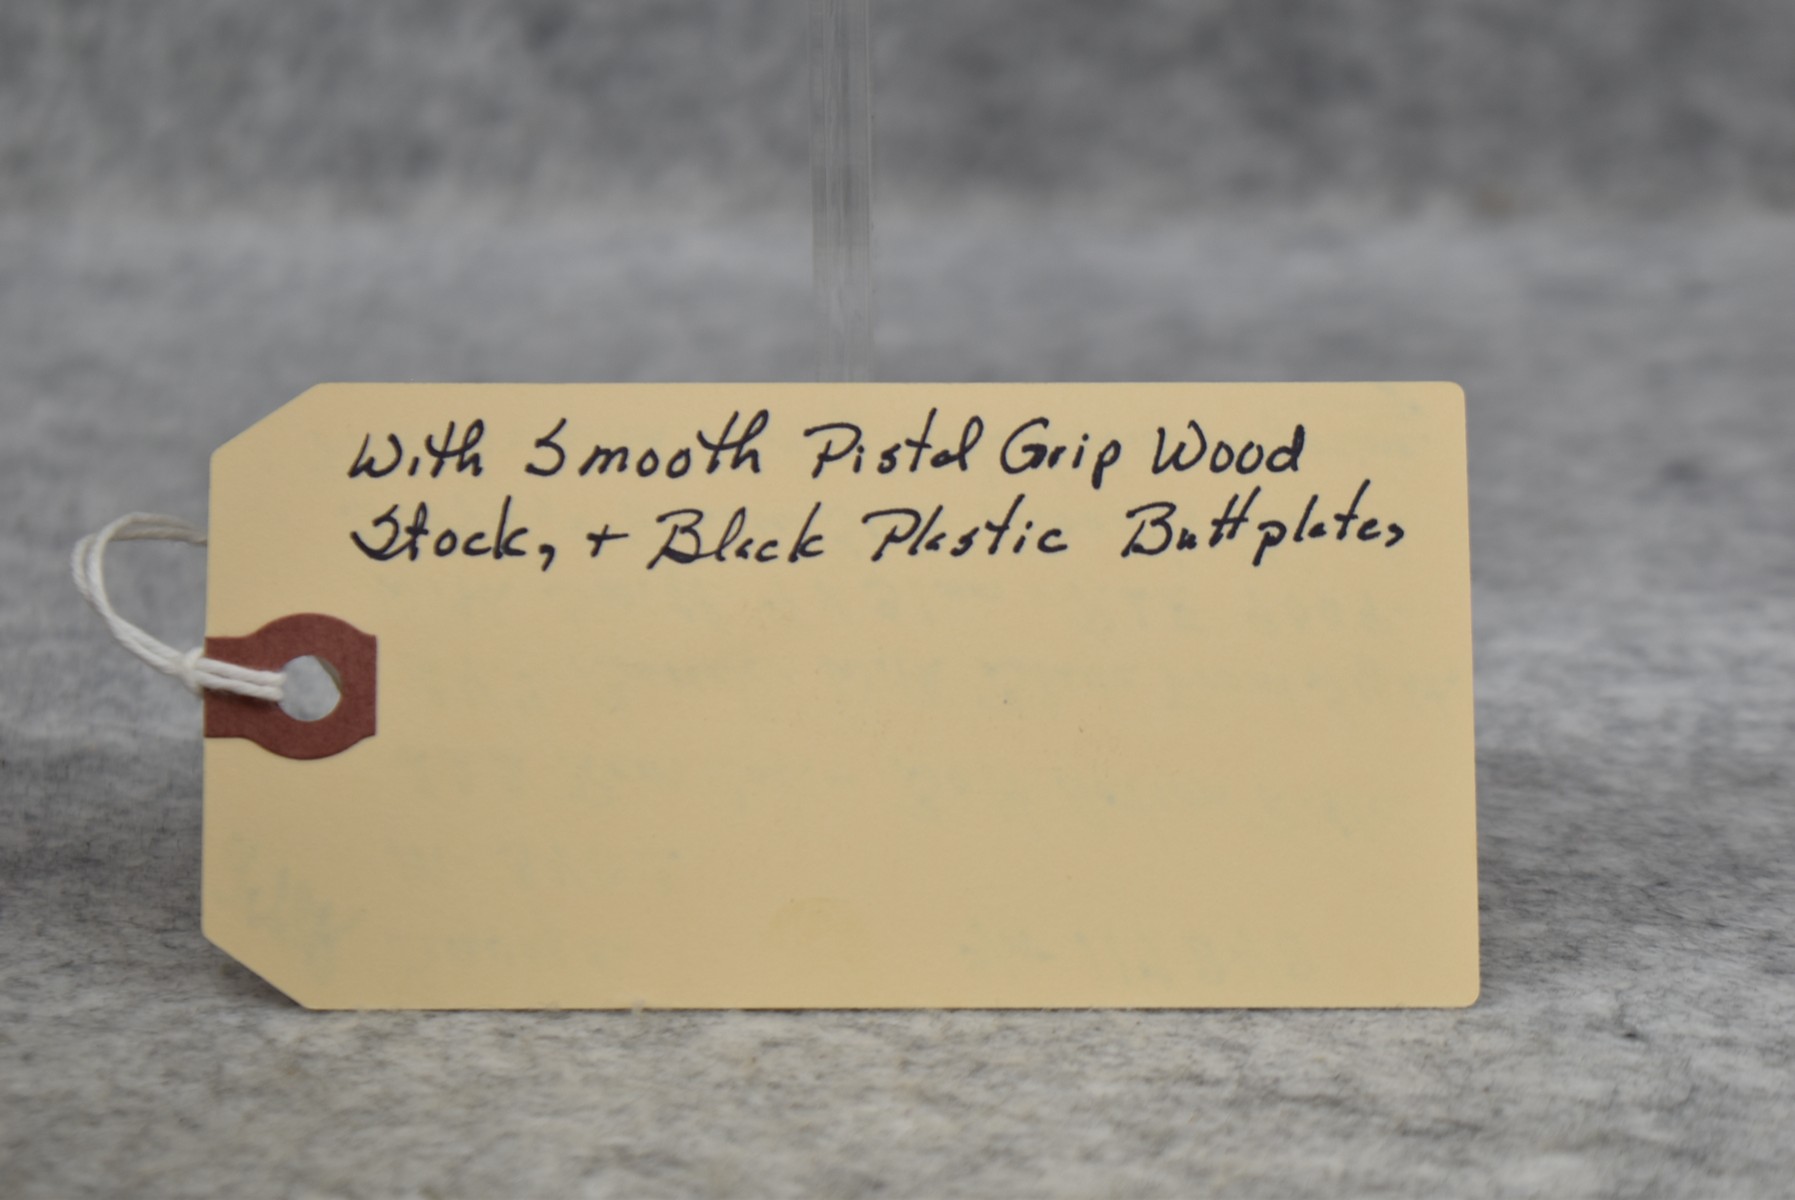 With Smooth Pistol Grip Wood
Stock, + Black Plastic Buttplate,